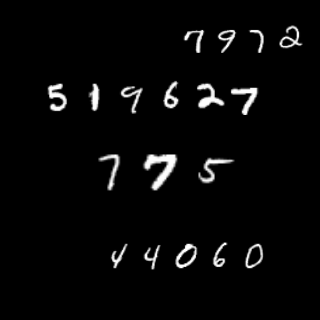 7972
519627
775
44060